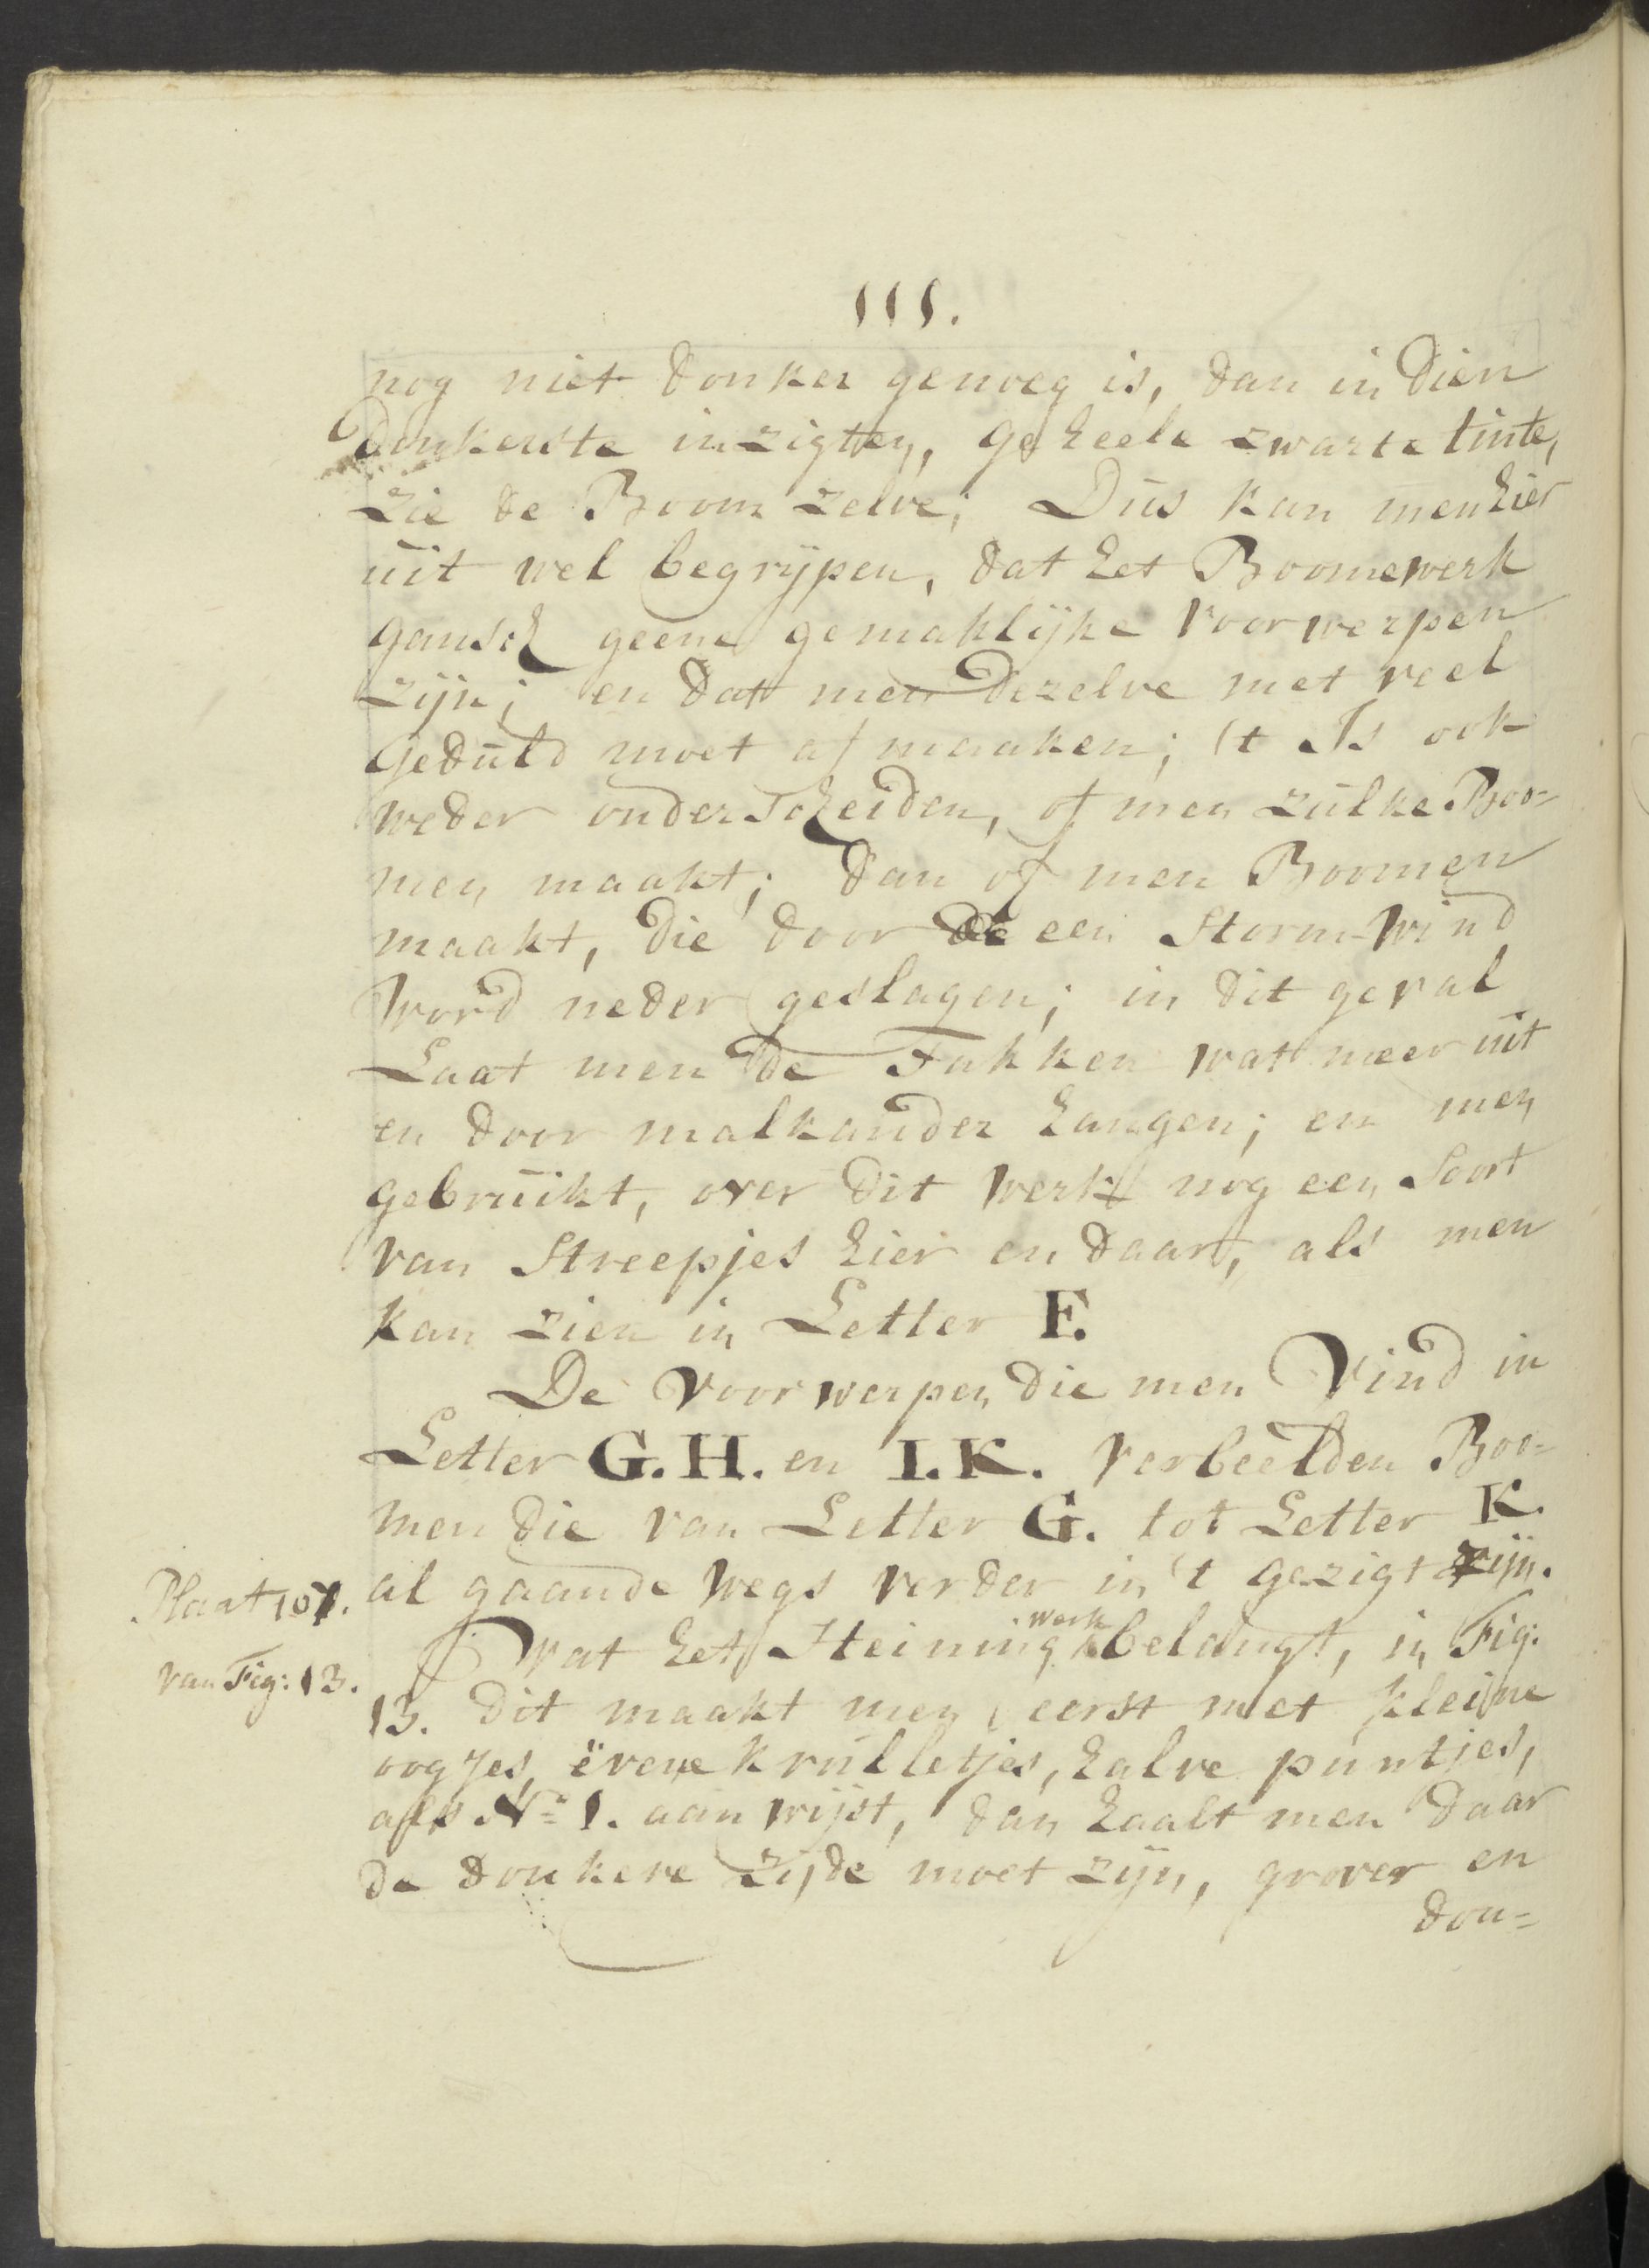 111.
nog niet donker genoeg is, dan in dien
donkerste inzigten, geheele zwarte tinte,
zie de Boom zelve; Dus kan men hier
uit wel begrijpen, dat het Boomewerk
gansch geene gemaklijke voorwerpen
zijn; en dat men dezelve met veel
geduld moet af maaken; 't Is ook
weder onderscheiden, of men zulke Boo=
men maakt; dan of men Boomen
maakt, die door een Storm-wind
word neder geslagen; in dit geval
Laat men de Takken wat meer uit
en door malkander hangen; en men
gebruikt, over dit werk nog een Soort
van Streepjes hier en daar, als men
kan zien in Letter F.
De voorwerpen die men Vind in
Letter G. H. en I. K. verbeelden Boo=
men die van Letter G. tot Letter K.
al gaande wegs verder in 't gezigt zijn.
Plaat 107.
van Fig: 13.
Wat het Steiningwerk belangt, in Fig:
13. dit maakt men eerst met kleine
oogjes, evene krulletjes, halve puntjes,
als No 1. aan wijst, dan haalt men daar
de donkere zijde moet zijn, grover en
don=